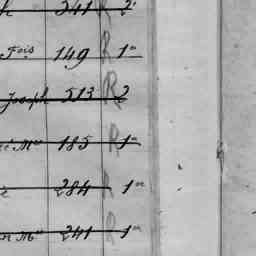 341 R 2
Fois 149 R 1re
Joseph 513 R 2
Mie 185 R 1re
284 R 1re
Mie 241 R 1re